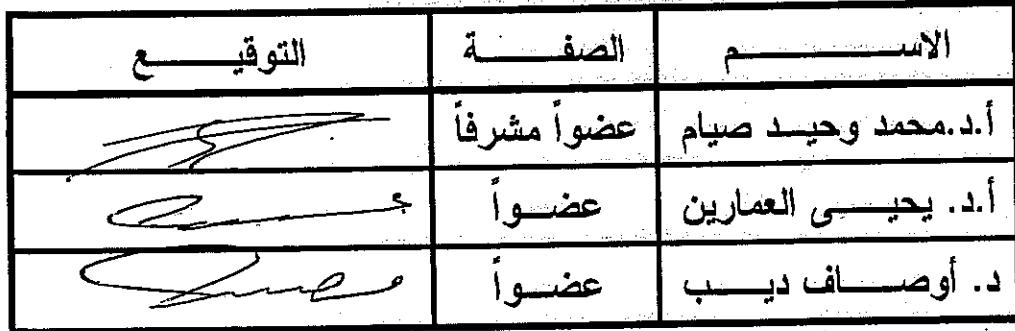 الاسم الصفة التوقيع
أ.د.محمد وحيد صيام عضواً مشرفاً
أ.د. يحيى العمارين عضواً
د. أوصاف ديب عضواً